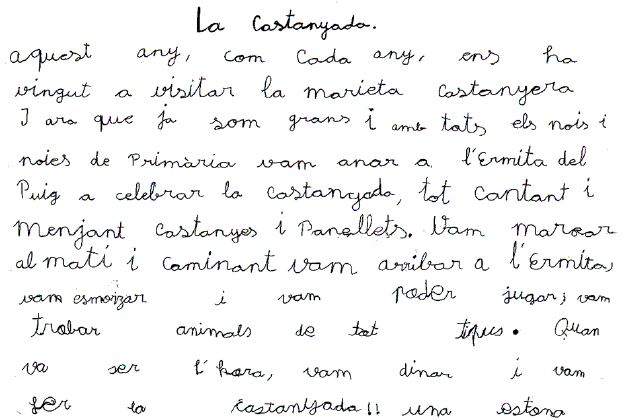 La Castanyada.
aquest any, com Cada any, ens ha
vingut a visitar la marieta castanyera
I ara que ja som grans i amb tots els nois i
noies de Primària vam anar a l'Ermita del
Puig a celebrar la castanyada, tot cantant i
Menjant castanyes i Panellets. Vam marxar
al matí i caminant vam arribar a l'Ermita,
vam esmorzar i vam poder jugar; vam
trobar animals de tot tipus. Quan
va ser l'hora, vam dinar i vam
fer la castanyada!! una estona